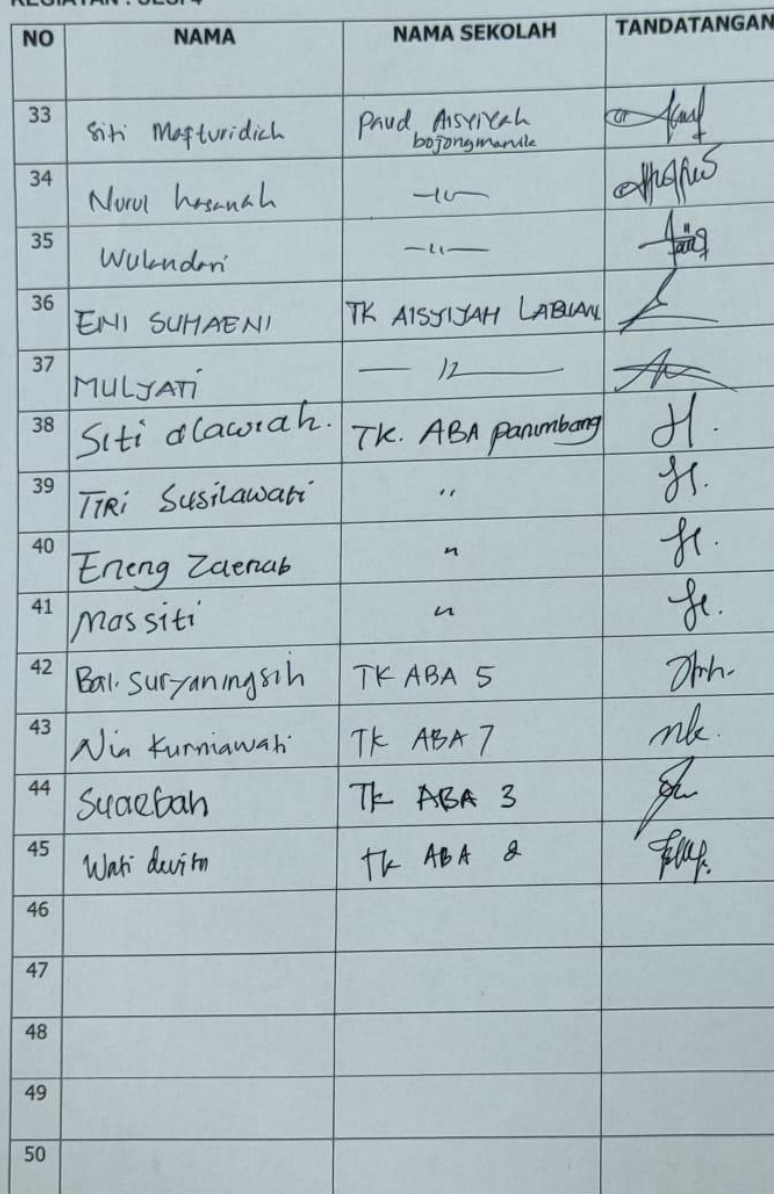 KEGIATAN : SESI 4
NO NAMA NAMA SEKOLAH TANDATANGAN
33 Siti Mafturidich Paud Aisyiyah
bojongmanik
34 Nurul hasanah —〃—
35 Wulandari —〃—
36 ENI SUHAENI TK AISYIYAH LABUAN
37 MULYATI — 〃 —
38 Siti alawiah. TK. ABA panimbang
39 TIRI Susilawati 〃
40 Eneng Zaenab 〃
41 Massiti 〃
42 Bai. Suryaningsih TK ABA 5
43 Nia Kurniawati TK ABA 7
44 Suaebah TK ABA 3
45 Wati devita TK ABA 2
46
47
48
49
50